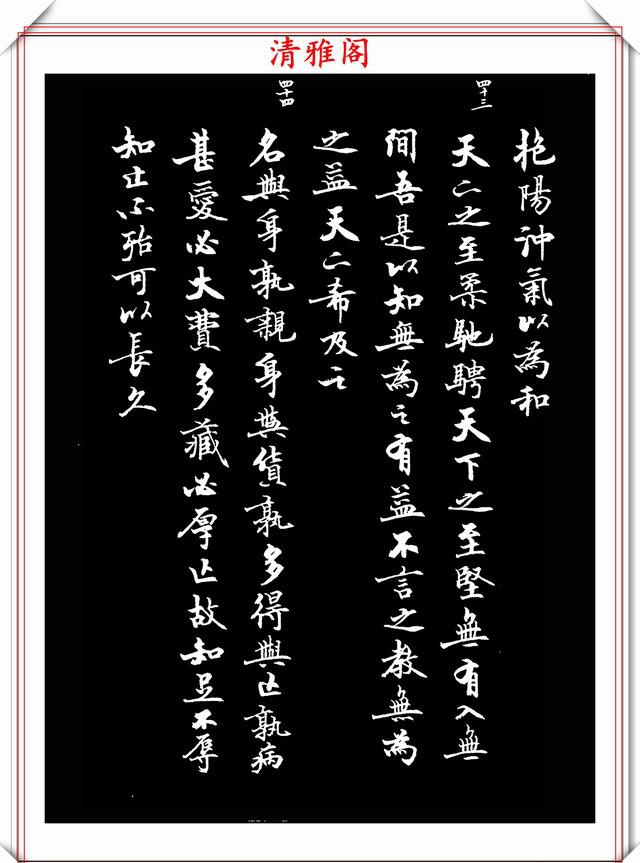 清雅阁
抱陽沖氣以為和
四十三
天下之至柔馳騁天下之至堅無有入無
間吾是以知無為之有益不言之教無為
之益天下希及之
四十四
名與身孰親身與貨孰多得與亡孰病
甚愛必大費多藏必厚亡故知足不辱
知止不殆可以長久